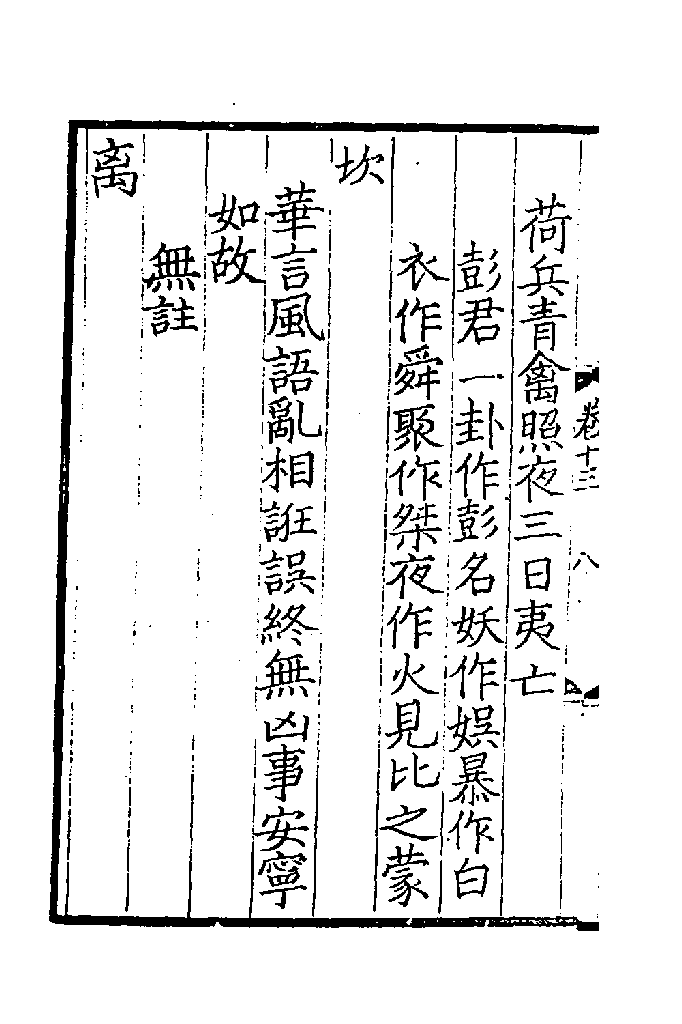 卷十三　八
荷兵青禽照夜三日夷亡
彭君一卦作彭名妖作娯暴作白
衣作舜聚作桀夜作火見比之蒙
坎
華言風語亂相誑誤終無凶事安寧
如故
無註
离